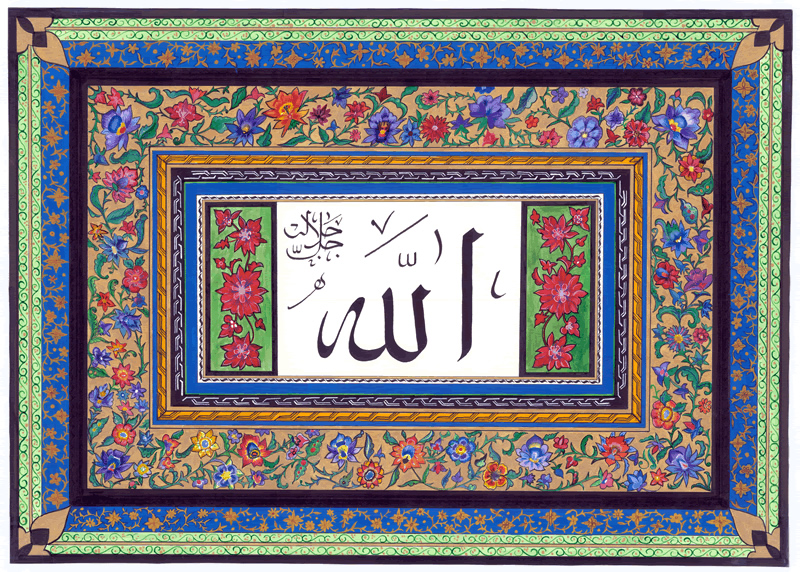 اللّٰه
جل جلاله